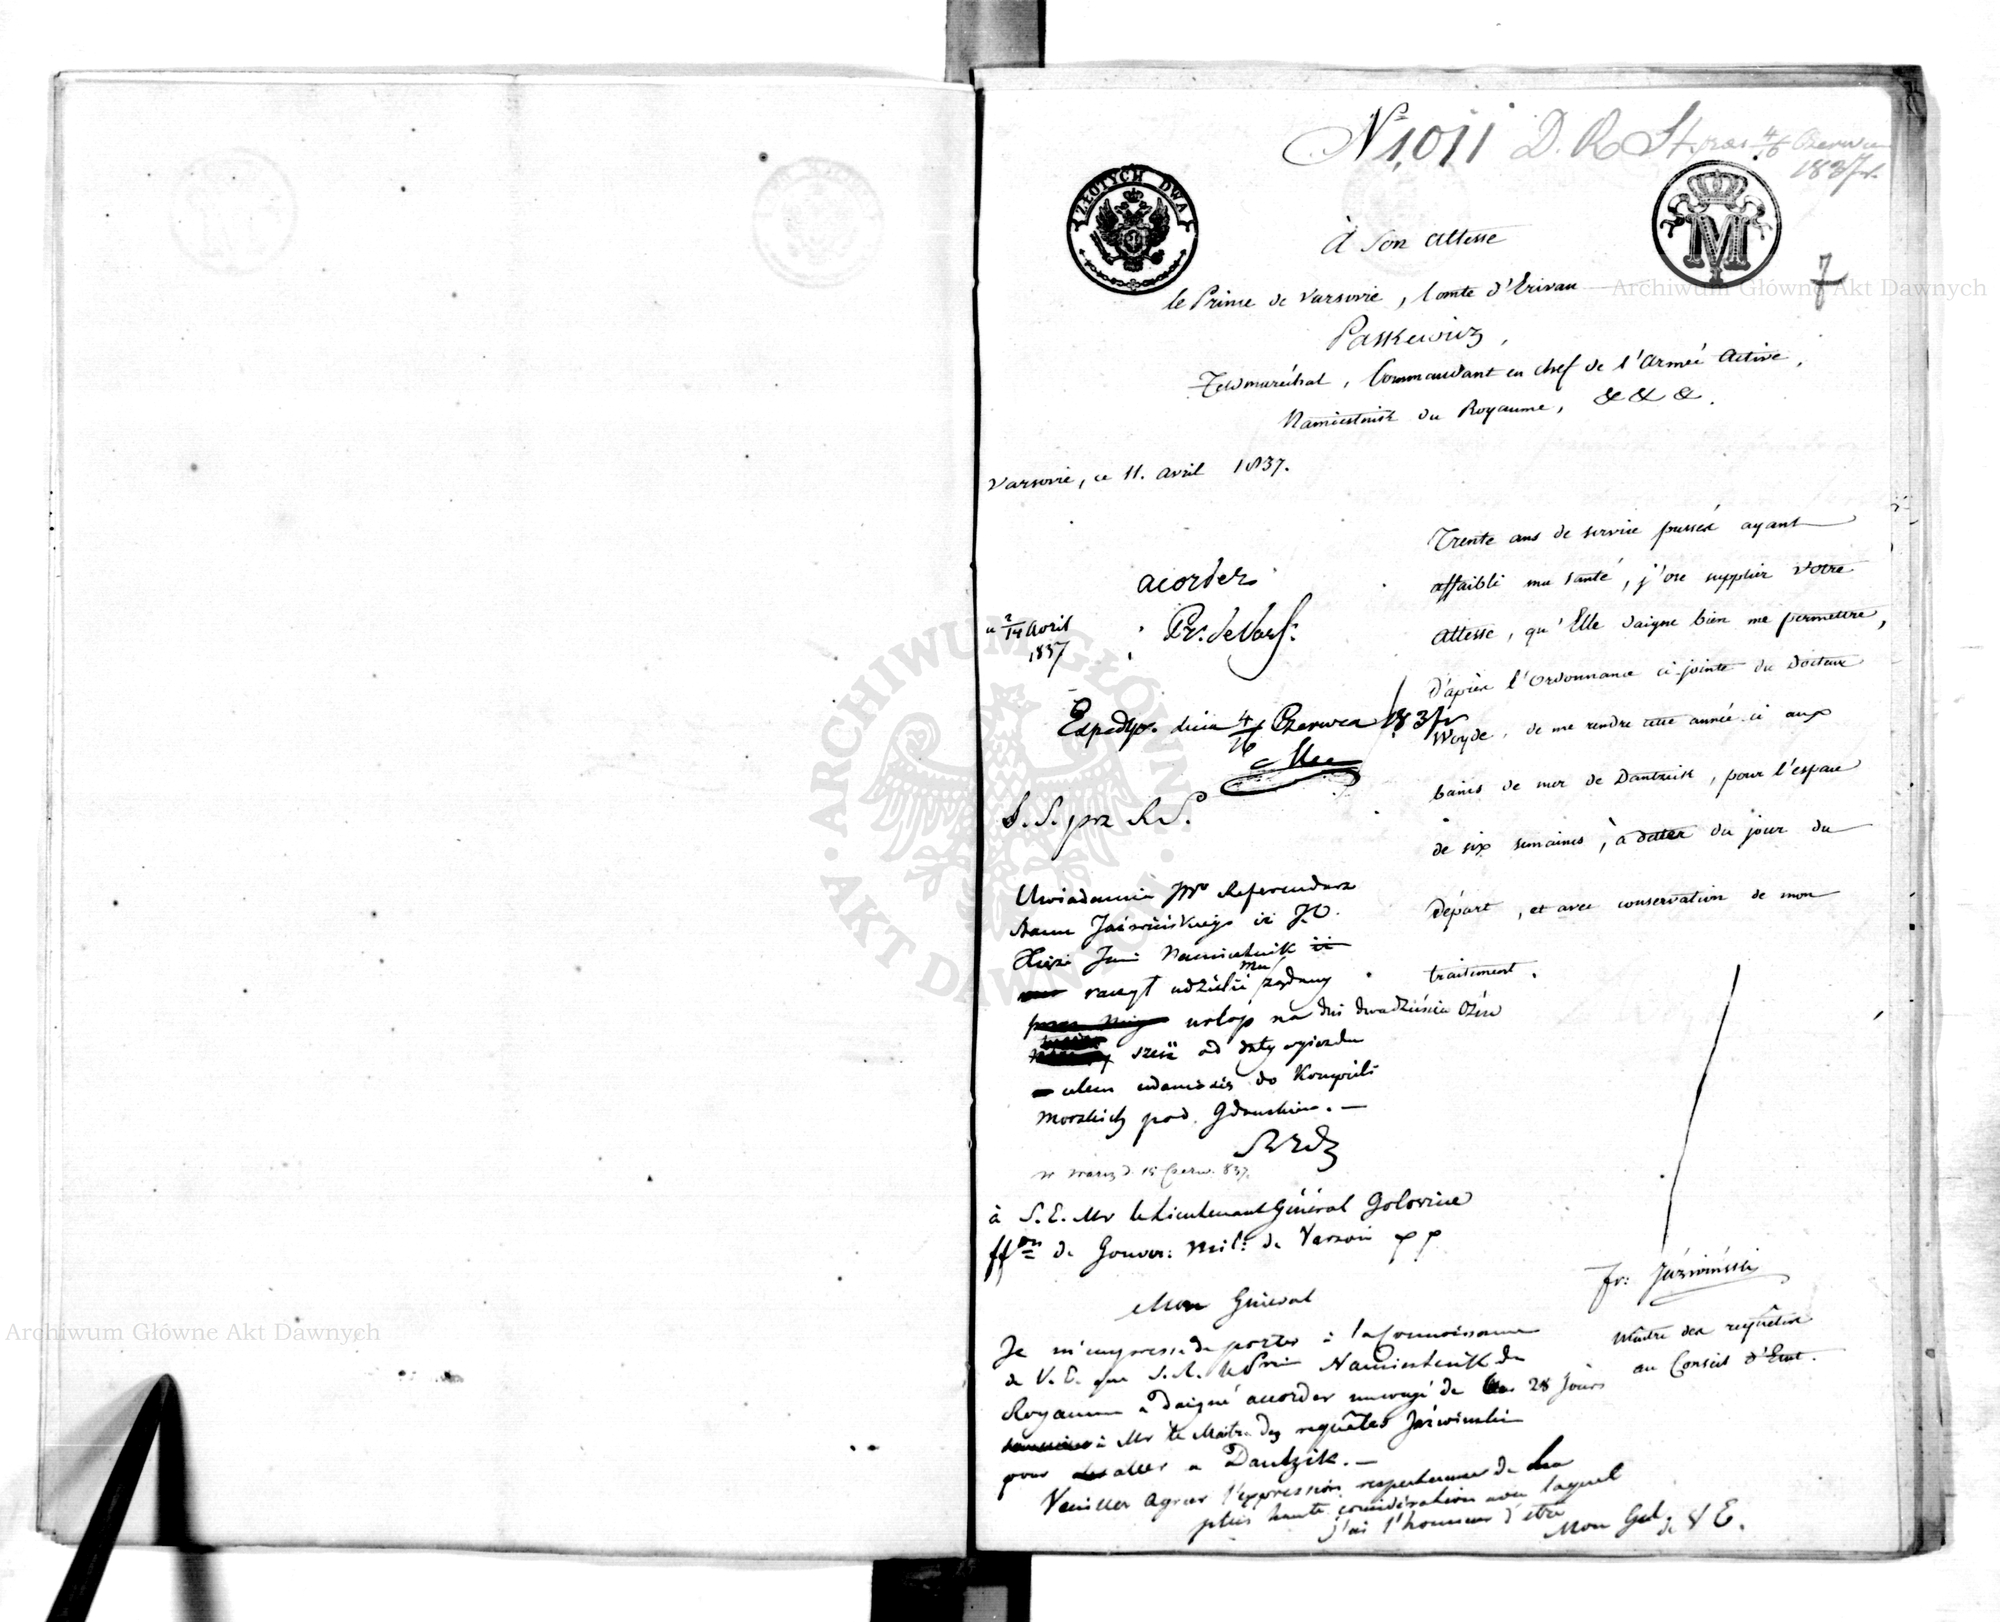 N 1,011 D. R. St. prez 4/16 Czerwca
1837 r.
ZŁOTYCH DWA
M
7
À Son Altesse
le Prince de Varsovie, Comte d'Erivan
Paskewicz,
Feldmaréchal, Commandant en chef de l'Armée Active,
Namiestnik du Royaume, & & &.
Varsovie, ce 11. avril 1837.
Trente ans de service passés ayant
affaibli ma santé, j'ose supplier Votre
Altesse, qu'Elle daigne bien me permettre,
d'après l'Ordonnance ci-jointe du Docteur
Woyde, de me rendre cette année-ci aux
bains de mer de Dantzick, pour l'espace
de six semaines, à dater du jour du
départ, et avec conservation de mon
traitement.
Fr: Jaźwiński
Maitre des requêtes
au Conseil d'Etat.
acorder
Pr. de Vars.
2/14 Avril
1837
Expedyo. dnia 4/16 Czerwca 1837 r
S. S. prz R S.
Uwiadamia JW Referendarza
Stanu Jaźwińskiego iż J.O.
Xiążę Jmć Namiestnik
raczył udzielić mu żądany
urlop na dni dwadzieścia ośm
od daty wyjazdu
celem udania się do Kąpieli
Morskich pod Gdańskiem. —
w Warsz d. 15 Czerw. 837.
à S. E. Mr le Lieutenant Général Golovine
ff on de Gouver: Mil: de Varsovie
Mon Général
Je m'empresse de porter à la connoissance
de V. E. que S. A. le Prince Namiestnik du
Royaume a daigné accorder un congé de 28 jours
à Mr le Maitre des requêtes Jaźwinski
pour aller a Dantzik. —
Veuillez agréer l'expression respectueuse de la
plus haute considération avec laquel
j'ai l'honneur d'être
Mon Gel
de V E.
Archiwum Główne Akt Dawnych
ARCHIWUM GŁÓWNE
AKT DAWNYCH
Archiwum Główne Akt Dawnych